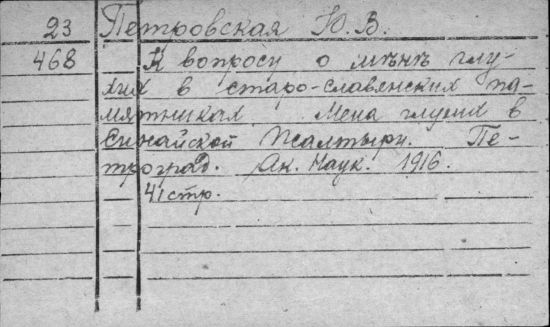 23 Петровская Ю. В.
468 К вопросу о мѣнѣ глу-
хих в старо-славянских па-
мятниках. Мена глухих в
Синайской Псалтыри. Пе-
троград. Ак. Наук. 1916.
41 стр.